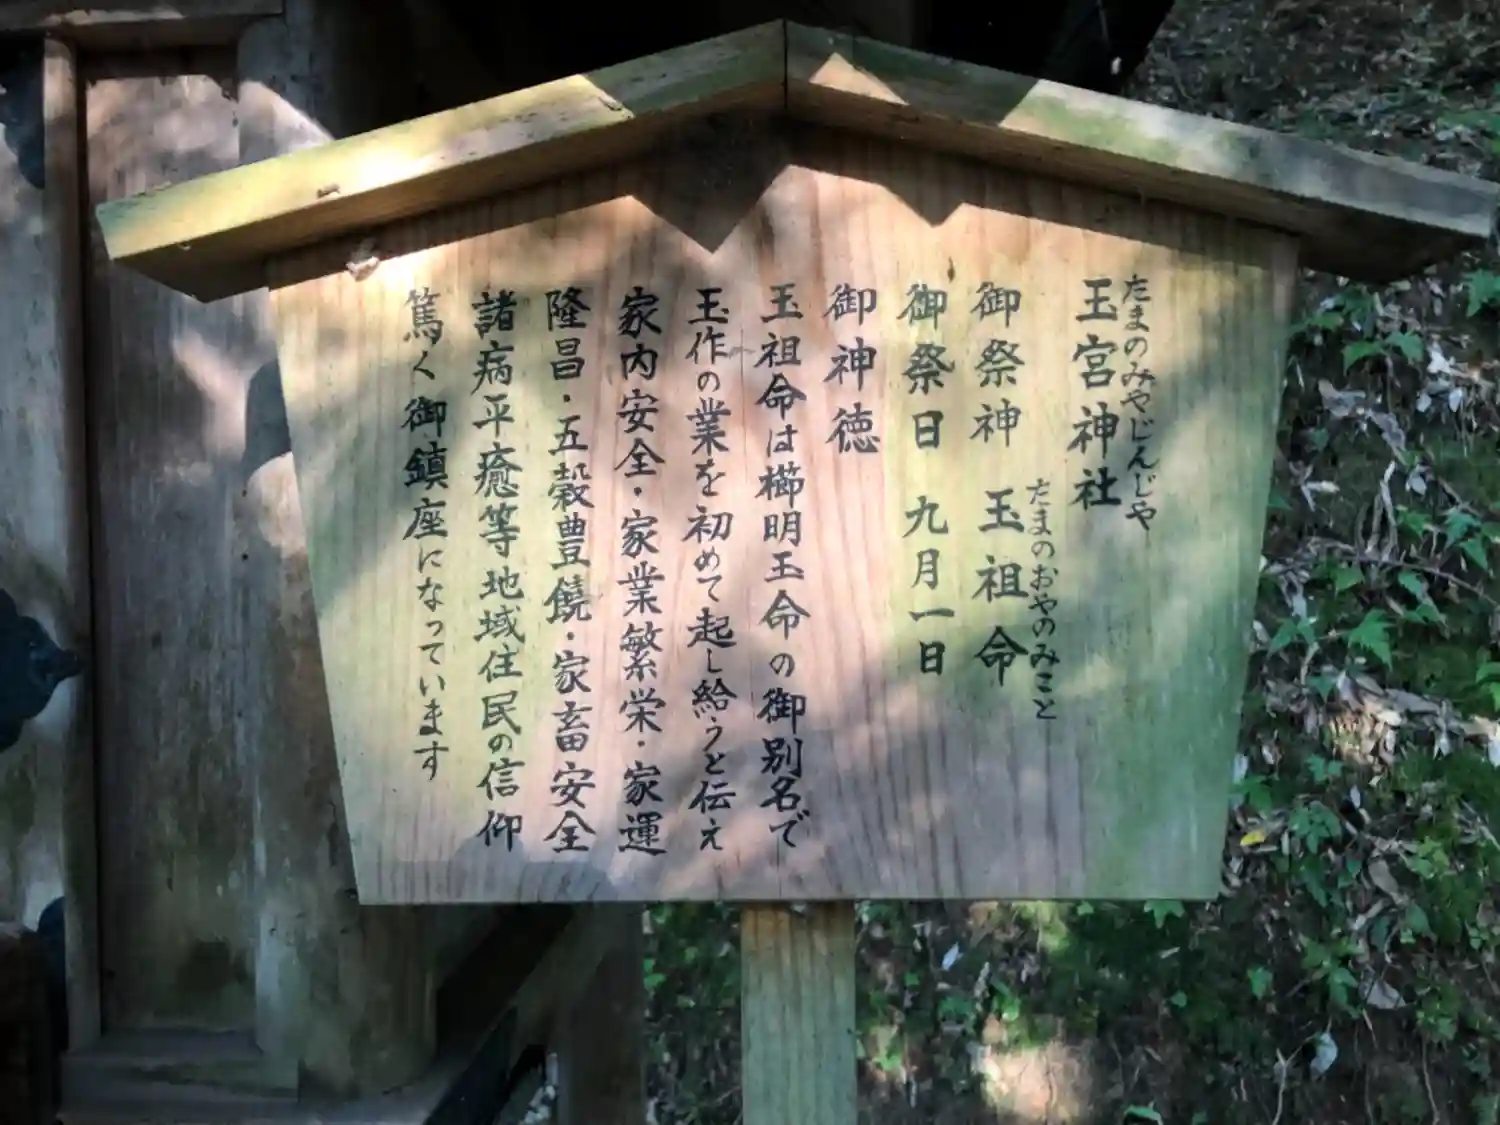 たまのみやじんじや
玉宮神社
たまのおやのみこと
御祭神 玉祖命
御祭日 九月一日
御神徳
玉祖命は櫛明玉命の御別名で
玉作の業を初めて起し給うと伝え
家内安全・家業繁栄・家運
隆昌・五穀豊饒・家畜安全
諸病平癒等地域住民の信仰
篤く御鎮座になっています